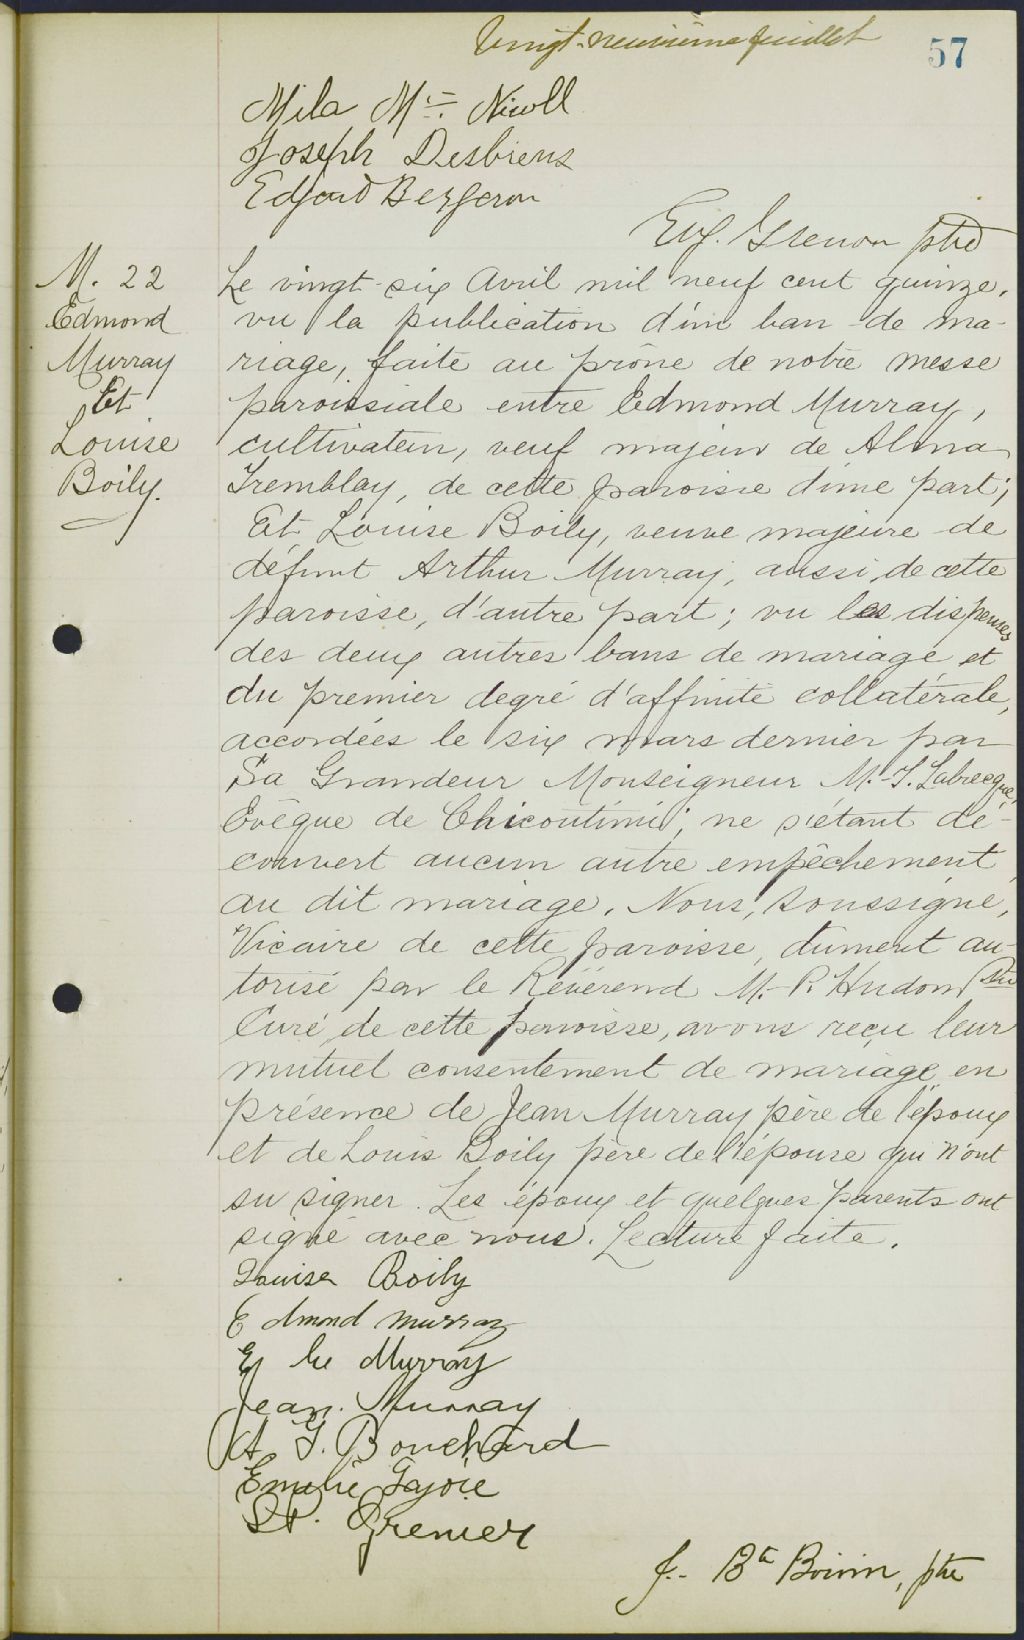 Vingt-neuvième feuillet
57
Mila Mc Nicoll
Joseph Desbiens
Edgard Bergeron
Eug. Grenon ptre
M. 22
Edmond
Murray
Et
Louise
Boily.
Le vingt-six Avril mil neuf cent quinze,
vu la publication d'un ban de ma-
riage, faite au prône de notre messe
paroissiale entre Edmond Murray,
cultivateur, veuf majeur de Alma
Tremblay, de cette paroisse d'une part;
Et Louise Boily, veuve majeure de
défunt Arthur Murray, aussi de cette
paroisse, d'autre part; vu les dispenses
des deux autres bans de mariage et
du premier degré d'affinité collatérale,
accordées le six mars dernier par
Sa Grandeur Monseigneur M.-T. Labrecque,
Evêque de Chicoutimi; ne s'étant dé-
couvert aucun autre empêchement
au dit mariage, Nous, soussigné,
Vicaire de cette paroisse, dûment au-
torisé par le Révérend M.-P. Hudon ptre
Curé de cette paroisse, avons reçu leur
mutuel consentement de mariage en
présence de Jean Murray père de l'époux
et de Louis Boily père de l'épouse qui n'ont
su signer. Les époux et quelques parents ont
signé avec nous. Lecture faite.
Louise Boily
Edmond Murray
Murray
Jean. Murray
A. G. Bouchard
Emelie Gajoie
Grenier
J.- Bte Boivin, ptre